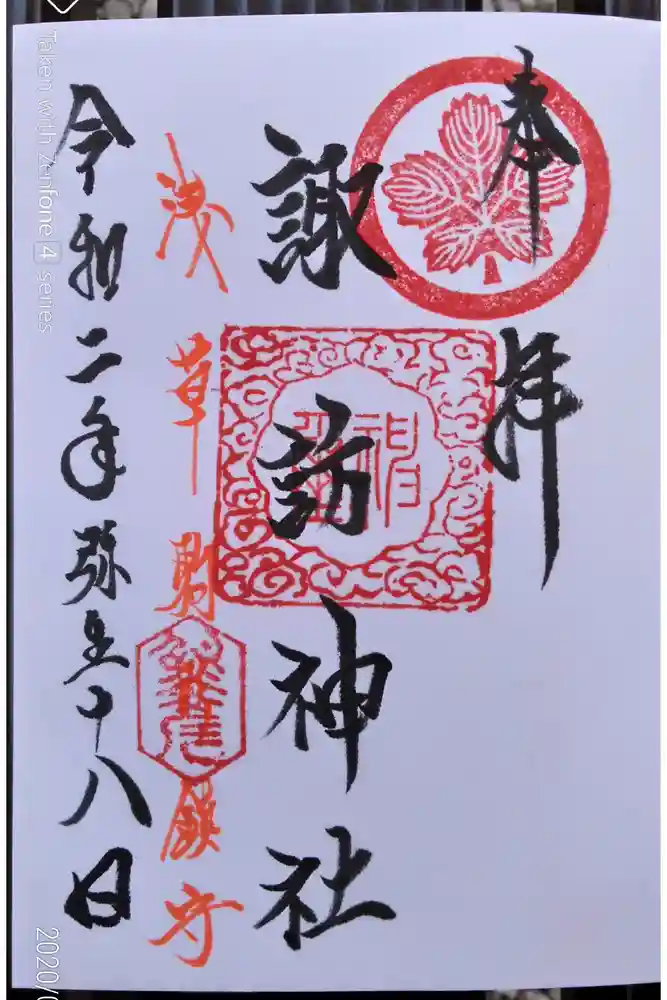 奉拝
諏訪神社
浅草駒形鎮守
令和二年弥生十八日
Taken with Zenfone 4 series
2020/0